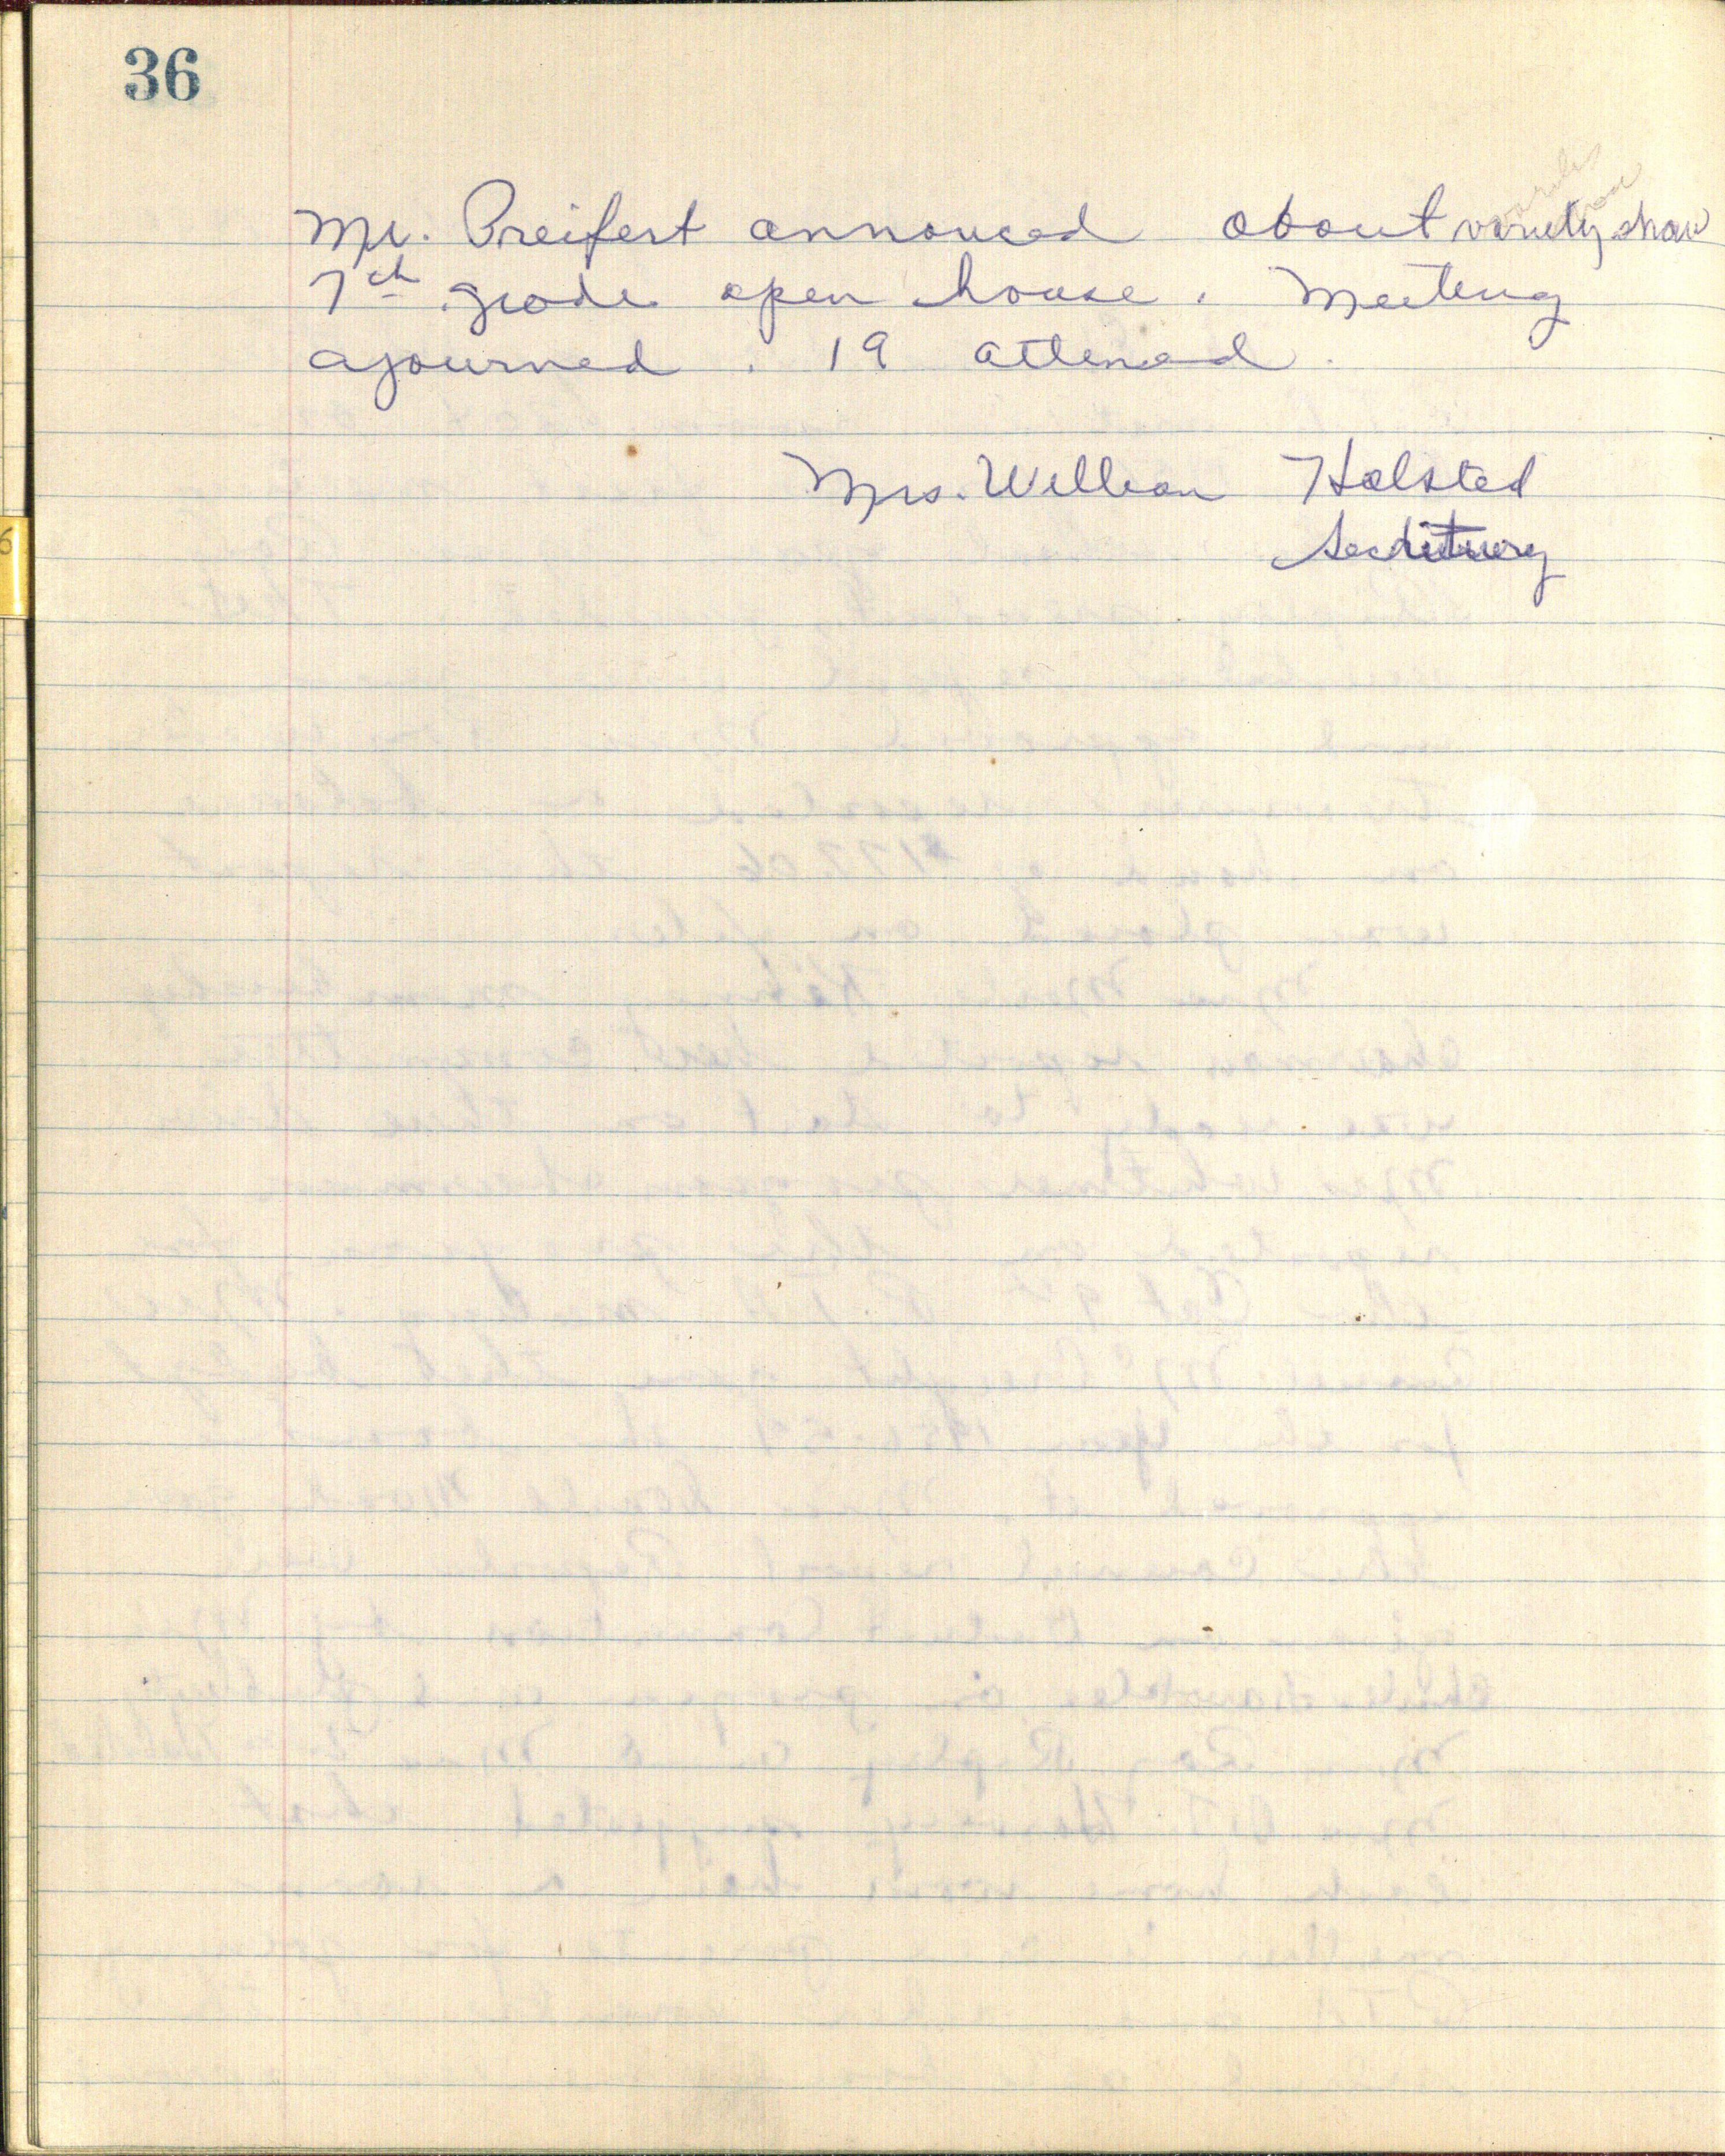 36
Mr. Preifert annouced about variety show
7th grade open house. Meeting
ajourned. 19 attened.
Mrs. William Halsted
Secretary
6